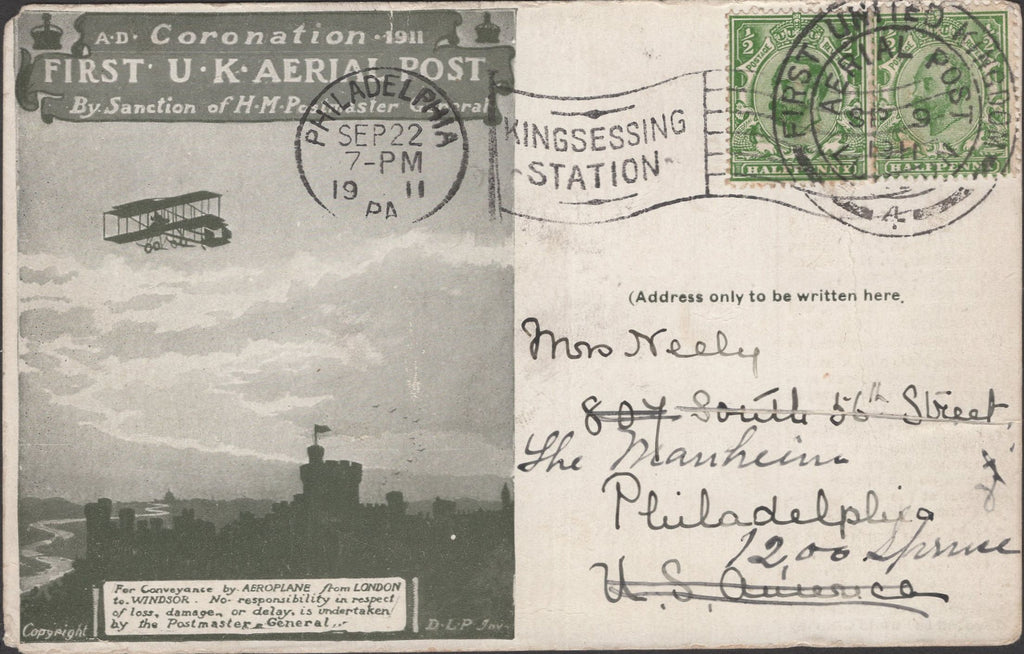 A·D· Coronation ·1911
FIRST U·K·AERIAL POST
By Sanction of H·M·Postmaster General
PHILADELPHIA
SEP 22
7-PM
19 11
PA
KINGSESSING
STATION
FIRST UNITED KINGDOM
AERIAL POST
1911
A
HALFPENNY
HALFPENNY
(Address only to be written here.
Mrs Neely
807 South 56th Street
The Manheim
Philadelphia
1200 Spruce
U.S. America
For Conveyance by AEROPLANE from LONDON
to WINDSOR. No responsibility in respect
of loss, damage, or delay, is undertaken
by the Postmaster General
Copyright
D·L·P Inv.